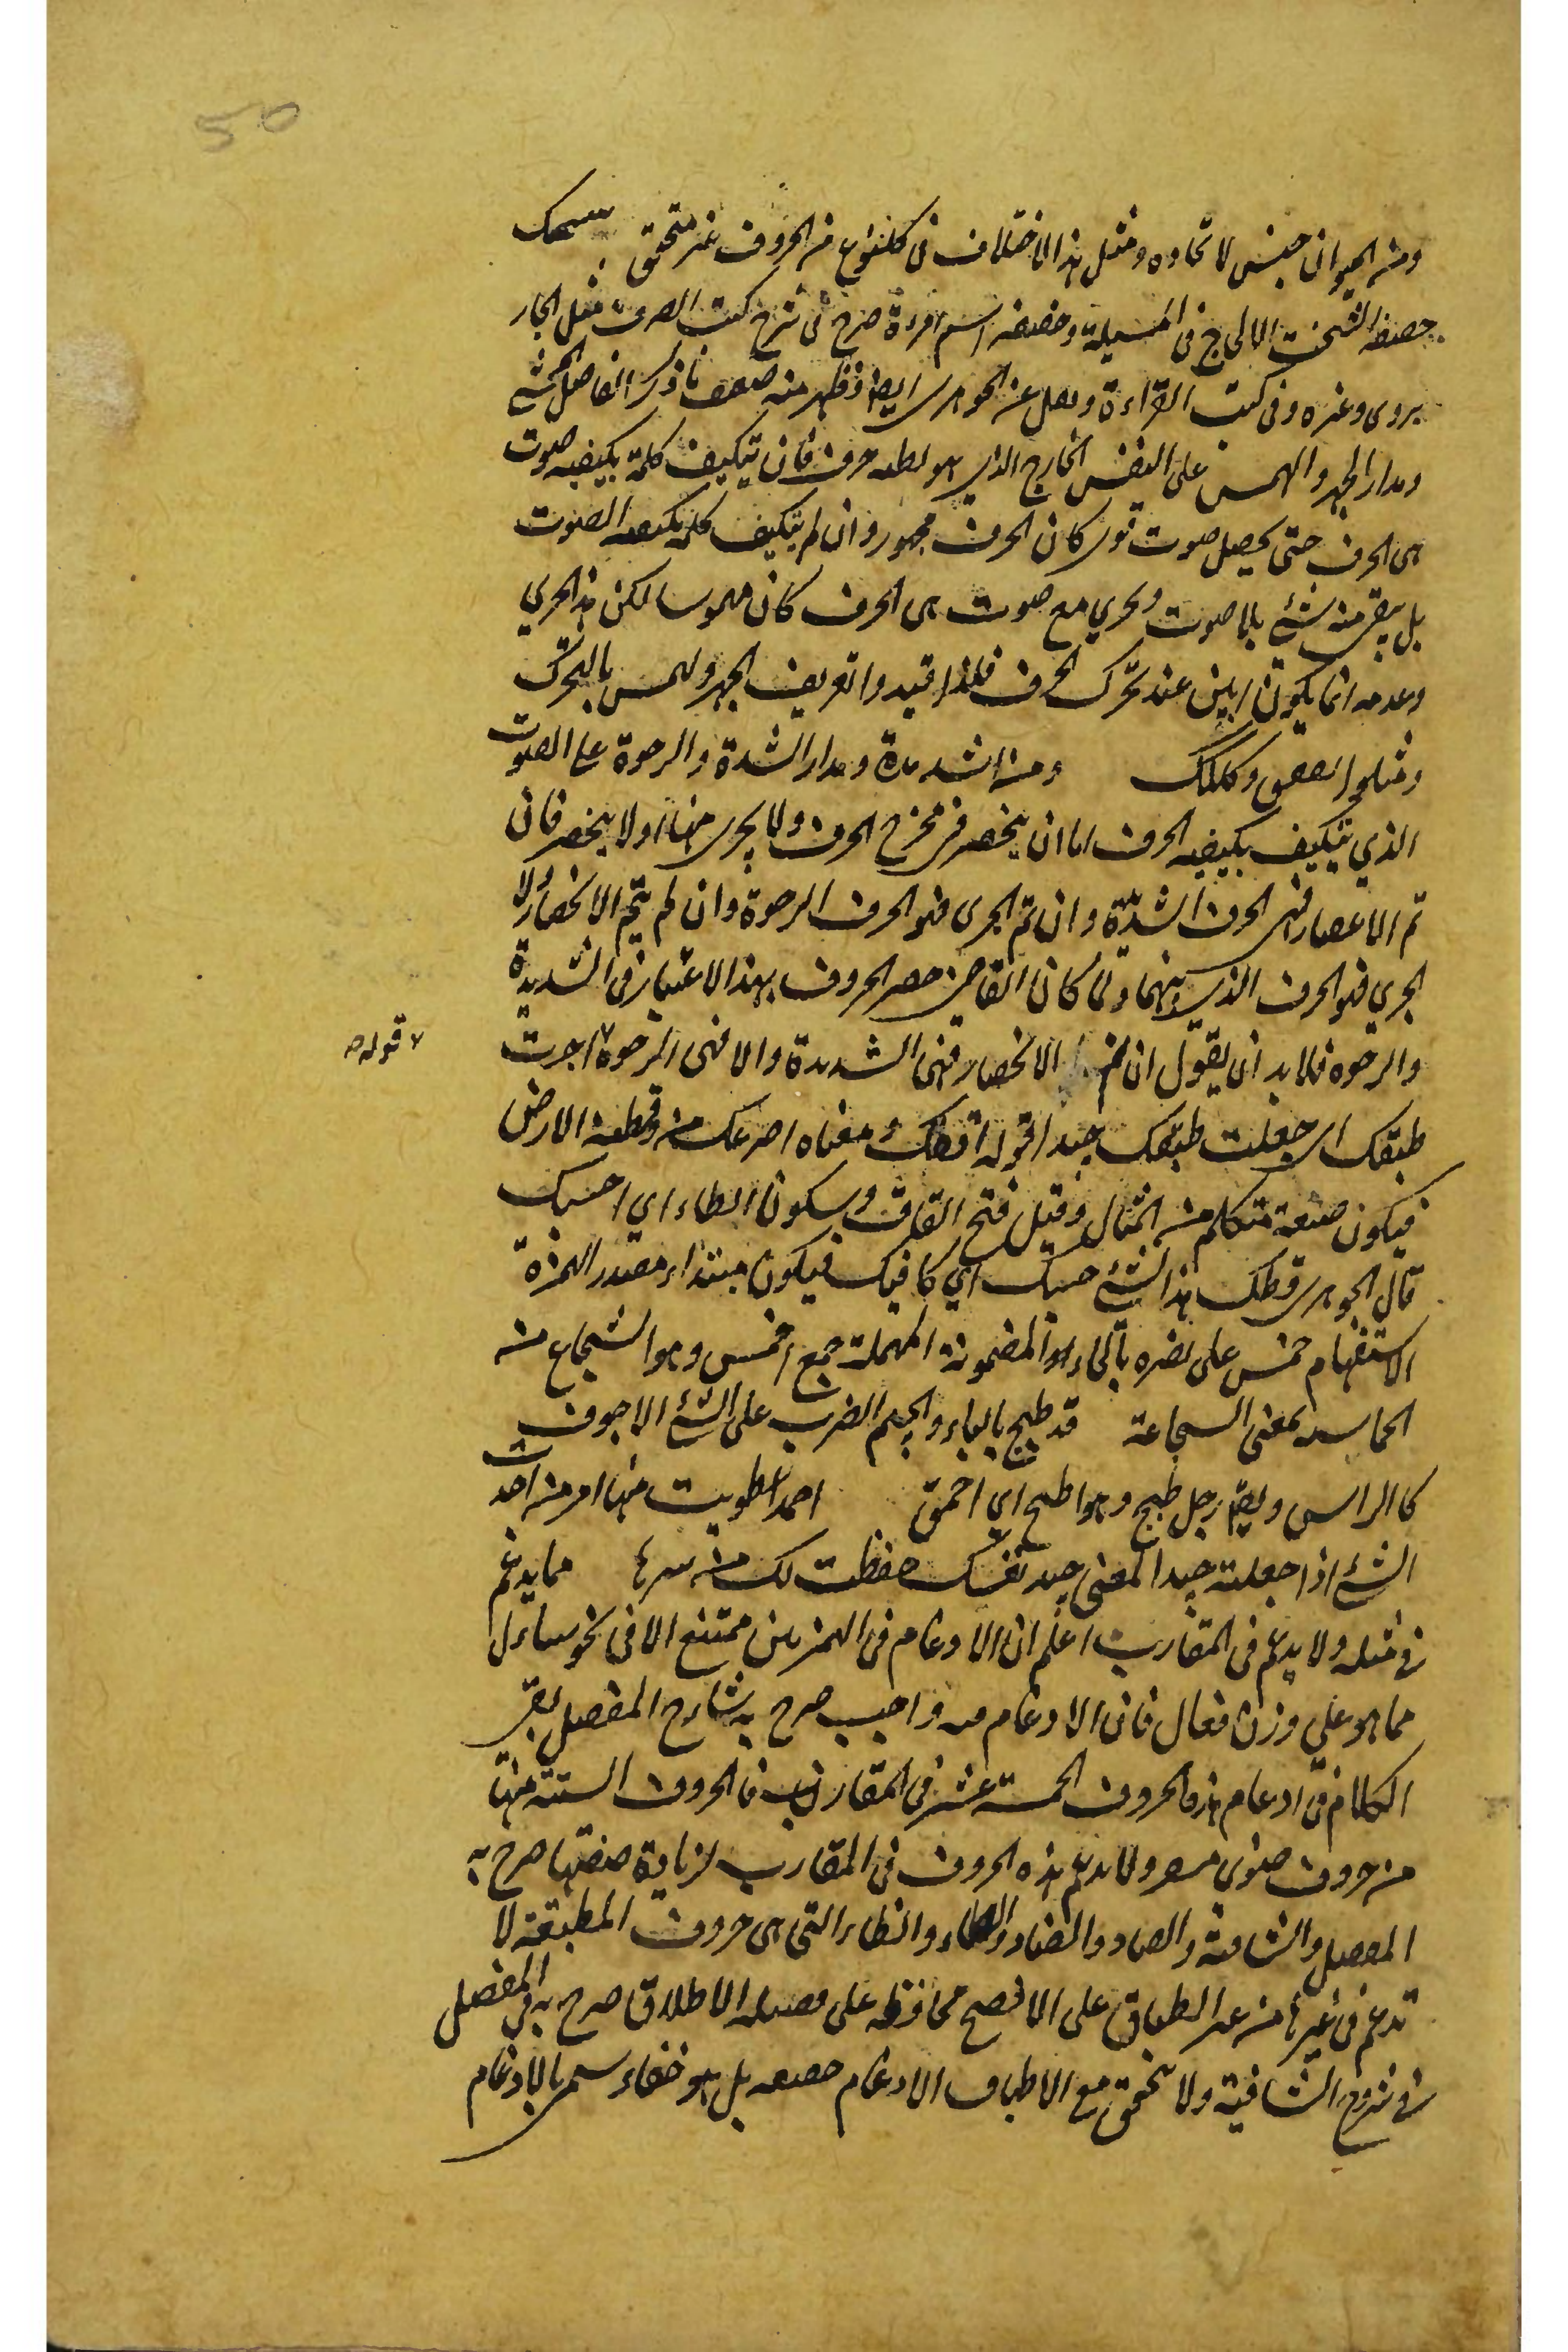 50
ومن الحيوان جنس لا تحاوه ومثل هذا الاختلاف فى كلنوع من الحروف غير متحقق ستشحثك
خصفه الشحث الالحاح فى المسيلة وخصفه اسم امرءة صرح فى شرح كتب الصرف مثل الجار
بردى وغيره وفى كتب القراءة ونقل عن الجوهرى ايضا فظهر منه ضعف ما ذكره الفاضل المحشى
ومدار الجهر والهمس على النفس الخارج الذى هو حرف فان تتكيف كلمة بكيفية صوت
هى الحرف حتى يحصل صوت قوى كان الحرف مجهور وان لم يتكيف كله بكيفية الصوت
بل يبقى منه شئ بلا صوت ويجري مع صوت هى الحرف كان مهموسا لكن هذا الجري
وعدمه انما يكونان ابين عند تحرك الحرف فلذا قيدوا تعريف الجهر والهمس بالتحرك
ومثلوا بققق وككك ومن الشديدة ومدار الشدة والرخوة على الصوت
الذي يتكيف بكيفية الحرف اما ان ينحصر فى مخرج الحرف ولا يجرى منها او لا ينحصر فان
تم الانحصار فهى الحرف الشديدة وان تم الجرى فهو الحرف الرخوة وان لم يتم الانحصار ولا
الجري فهو الحرف الذى بينهما ولما كان القاضى حصر الحروف بهذا الاعتبار فى الشديدة
والرخوه فلابد ان يقول ان تم الانحصار فهى الشديدة والا فهى الرخوة اجدت
قوله
طبقك اى جعلت طبقك جيدا قوله اقطك معناه اصرعك من قطعة الارض
فيكون صيغة متكلم من المثال وقيل فتح القاف وسكون الطاء اي احسبك
قال الجوهرى قطك هذا الشئ حسبك اي كافيك فيكون مبتداء مصدر الهمزة
الاستفهام حمس على نصره بالحاء المضمونة المهملة جمع احمس وهو الشجاع من
الحماسه بمعنى السجاعة قد طبج بالباء والجيم الضرب على الشئ الاجوف
كالراس ويقم رجل طبج وهو اطبج اي احمق احد امر من اجدت
الشئ اذا جعلته جيدا المعنى جيد نفسك حفظت لك من سرها مما يدغم
فى مثله ولا يدغم فى المتقارب اعلم ان الادغام فى الهمزتين ممتنع الا فى نحو ساءل
مما هو على وزن فعال فان الادغام فيه واجب صرح به شارح المفصل بقى
الكلام فى ادغام هذه الحروف الخمسة عشر فى المتقارب فالحروف الستة منها
من حروف ضوى مشفر ولا يدغم هذه الحروف فى المقارب لزيادة صفتها صرح به
المفصل والشافية والصاد والضاد والطاء والظاء التى هى حروف المطبقة لا
تدغم فى غيرها من غير اطباق على الافصح محافظة على فضيلة الاطلاق صرح به فى المفصل
فى شروح الشافية ولا يتحقق مع الاطباق الادغام حقيقه بل هو خفاء سمى بالادغام